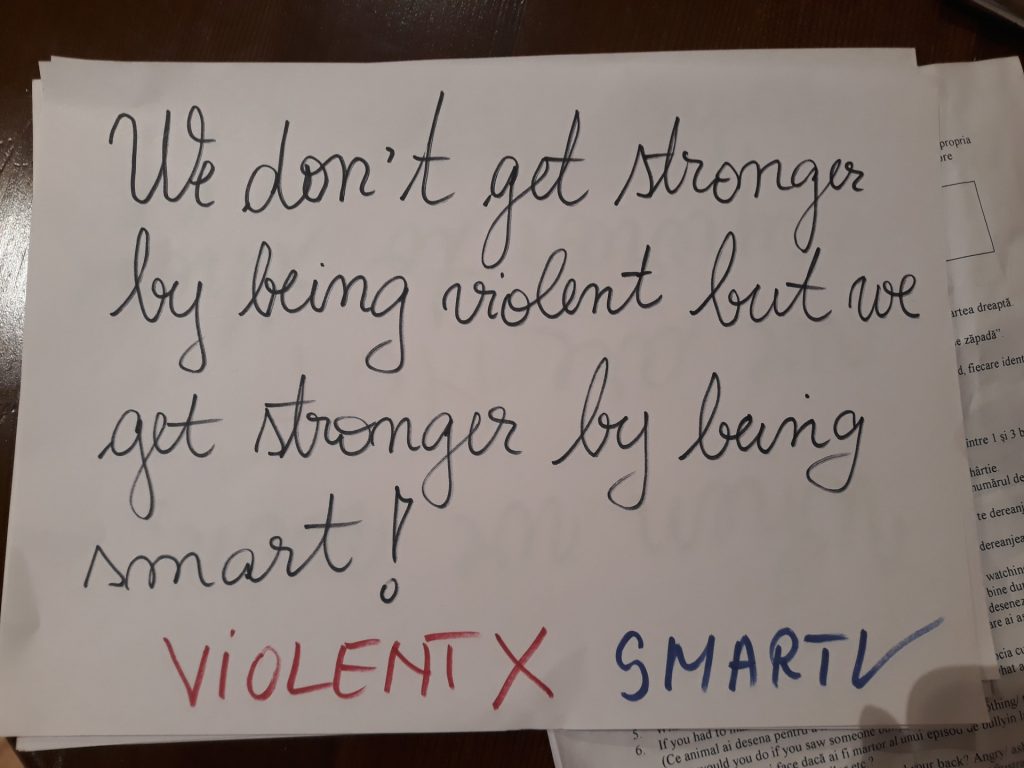 We don't get stronger
by being violent but we
get stronger by being
smart!
VIOLENT X SMART✓
propria
artea dreaptă.
e zăpadă".
d, fiecare ident
intre 1 și 3 b
hârtie
numărul de
te dereanj
dereanjea
watching
bine dun
desenez
are ai as
ocia cu
what a
5.
6. If you had to
(Ce animal ai desena pentru a
would you do if you saw someone
face dacă ai fi martor al unui episod de bullyin
your back? Angry/